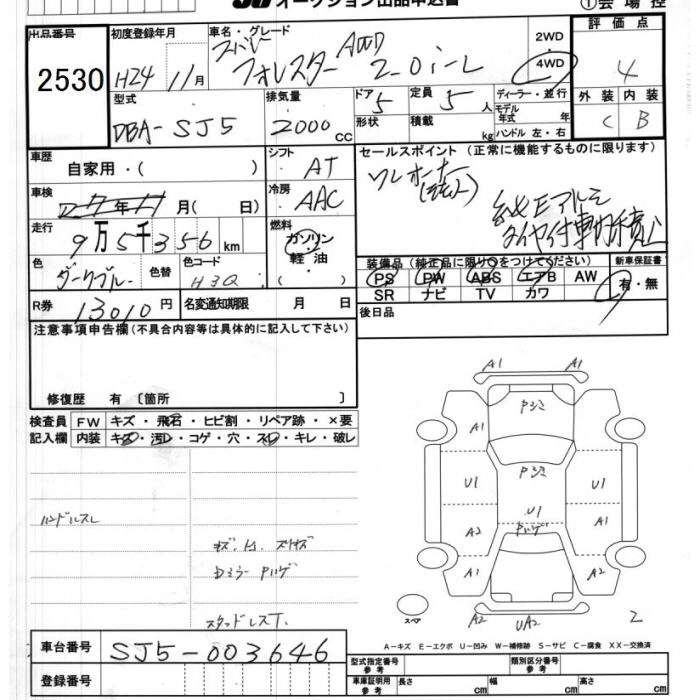 オークション出品申込書
①会場控
出品番号 初度登録年月 車名・グレード 2WD 評価点
スバル
2530 H24 11月 フォレスター AWD 2.0i-L 4WD 4
型式 排気量 ドア 定員 ディーラー・並行 外装 内装
DBA-SJ5 2000cc 5 5人 モデル年式 年 C B
形状 積載 kg ハンドル 左・右
車歴 自家用・( ) シフト AT セールスポイント (正常に機能するものに限ります)
ワンオーナー
車検 年 月(日) 冷房 AAC
走行 9万5千356km 燃料 ガソリン・軽油・( )
タイヤ付車内積込
色 ダークブルー 色替 色コード H3Q
装備品(純正品に限り○をつけてください) 新車保証書
PS PW ABS エアB AW 有・無
SR ナビ TV カワ
R券 13010円 名変通知期限 月 日 後日品
注意事項申告欄(不具合内容等は具体的に記入して下さい)
修復歴 有 〔箇所 〕
検査員記入欄 FW キズ・飛石・ヒビ割・リペア跡・×要
内装 キズ・汚レ・コゲ・穴・スレ・キレ・破レ
A1 A1
A1
U1 U1
U1
A2 A1
A1 A2
ハンドルスレ
スペア
A2 UA2 2
スタッドレスT.
A-キズ E-エクボ U-凹み W-補修跡 S-サビ C-腐食 XX-交換済
車台番号 SJ5-003646
登録番号
型式指定番号 参考 類別区分番号 参考
車庫証明用 参考 長さ cm 幅 cm 高さ cm